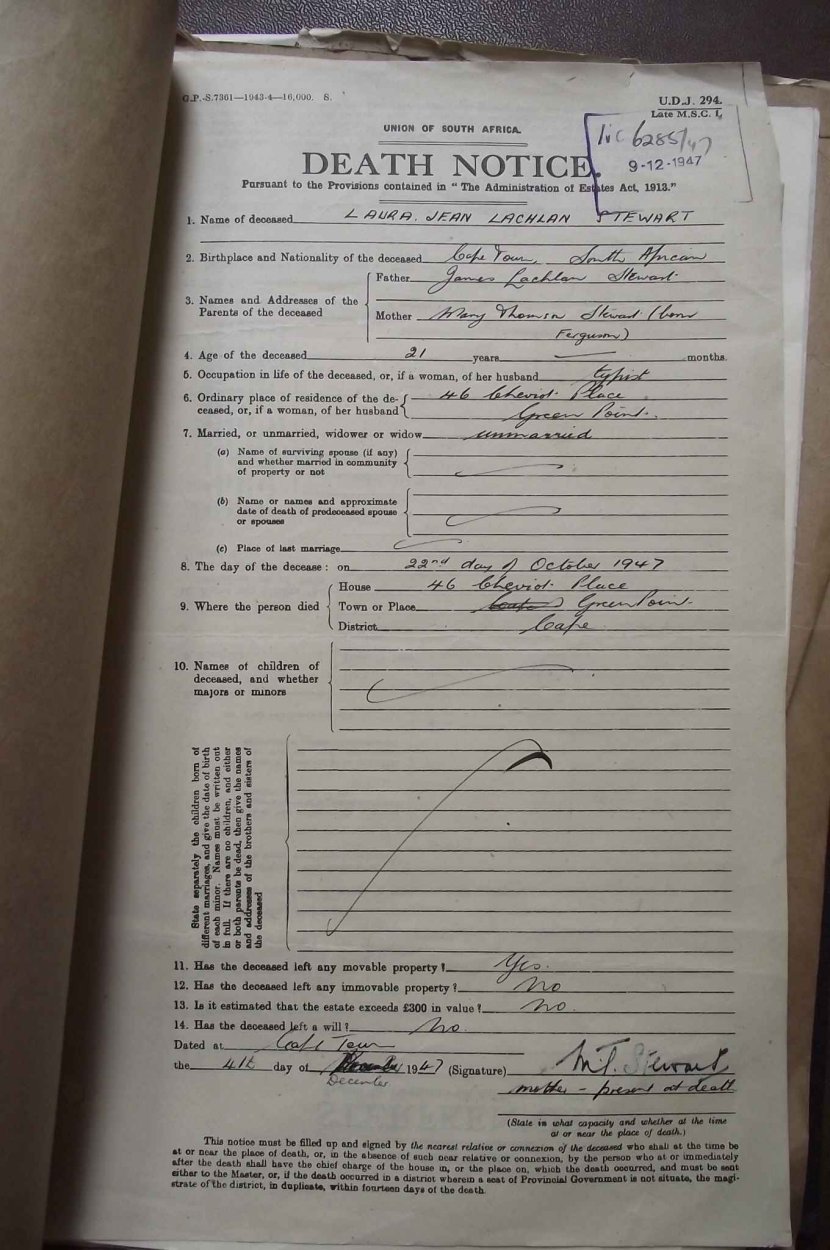 G.P.-S.7361—1943-4—16,000. S.
U.D.J. 294.
Late M.S.C. 1.
6285/47
9-12-1947
UNION OF SOUTH AFRICA.
DEATH NOTICE.
Pursuant to the Provisions contained in "The Administration of Estates Act, 1913."
1. Name of deceased LAURA JEAN LACHLAN STEWART
2. Birthplace and Nationality of the deceased Cape Town, South African
3. Names and Addresses of the Parents of the deceased
Father James Lachlan Stewart
Mother Mary Thomson Stewart (born
Ferguson)
4. Age of the deceased 21 years — months.
5. Occupation in life of the deceased, or, if a woman, of her husband typist
6. Ordinary place of residence of the de- 46 Cheviot Place
ceased, or, if a woman, of her husband Green Point.
7. Married, or unmarried, widower or widow unmarried
(a) Name of surviving spouse (if any)
and whether married in community
of property or not
(b) Name or names and approximate
date of death of predeceased spouse
or spouses
(c) Place of last marriage
8. The day of the decease: on 22nd day of October 1947
9. Where the person died
House 46 Cheviot Place
Town or Place Green Point.
District Cape
10. Names of children of
deceased, and whether
majors or minors
State separately the children born of
different marriages, and give the date of birth
of each minor. Names must be written out
in full. If there are no children, and either
or both parents be dead, then give the names
and addresses of the brothers and sisters of
the deceased
11. Has the deceased left any movable property? Yes.
12. Has the deceased left any immovable property? No
13. Is it estimated that the estate exceeds £300 in value? No.
14. Has the deceased left a will? No.
Dated at Cape Town
the 4th day of 1947 (Signature) M.T. Stewart
December
mother - present at death
(State in what capacity and whether at the time
at or near the place of death.)
This notice must be filled up and signed by the nearest relative or connexion of the deceased who shall at the time be
at or near the place of death, or, in the absence of such near relative or connexion, by the person who at or immediately
after the death shall have the chief charge of the house in, or the place on, which the death occurred, and must be sent
either to the Master, or, if the death occurred in a district wherein a seat of Provincial Government is not situate, the magi-
strate of the district, in duplicate, within fourteen days of the death.